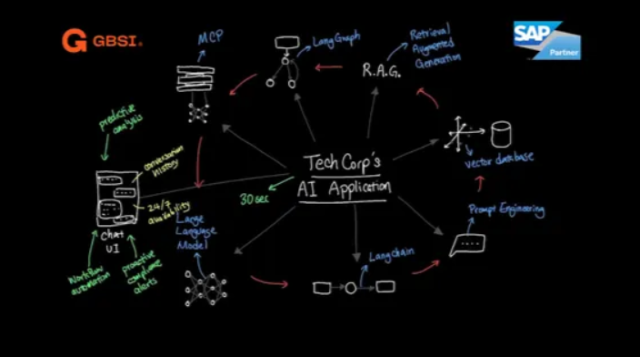 GBSI
SAP
Partner
MCP
LangGraph
R.A.G.
Retrieval
Augmented
Generation
predictive
analysis
conversation
history
24/7
availability
Chat
UI
Workflow
automation
proactive
compliance
alerts
Tech Corp's
AI Application
30 sec
vector database
Prompt Engineering
Large
Language
Model
Langchain